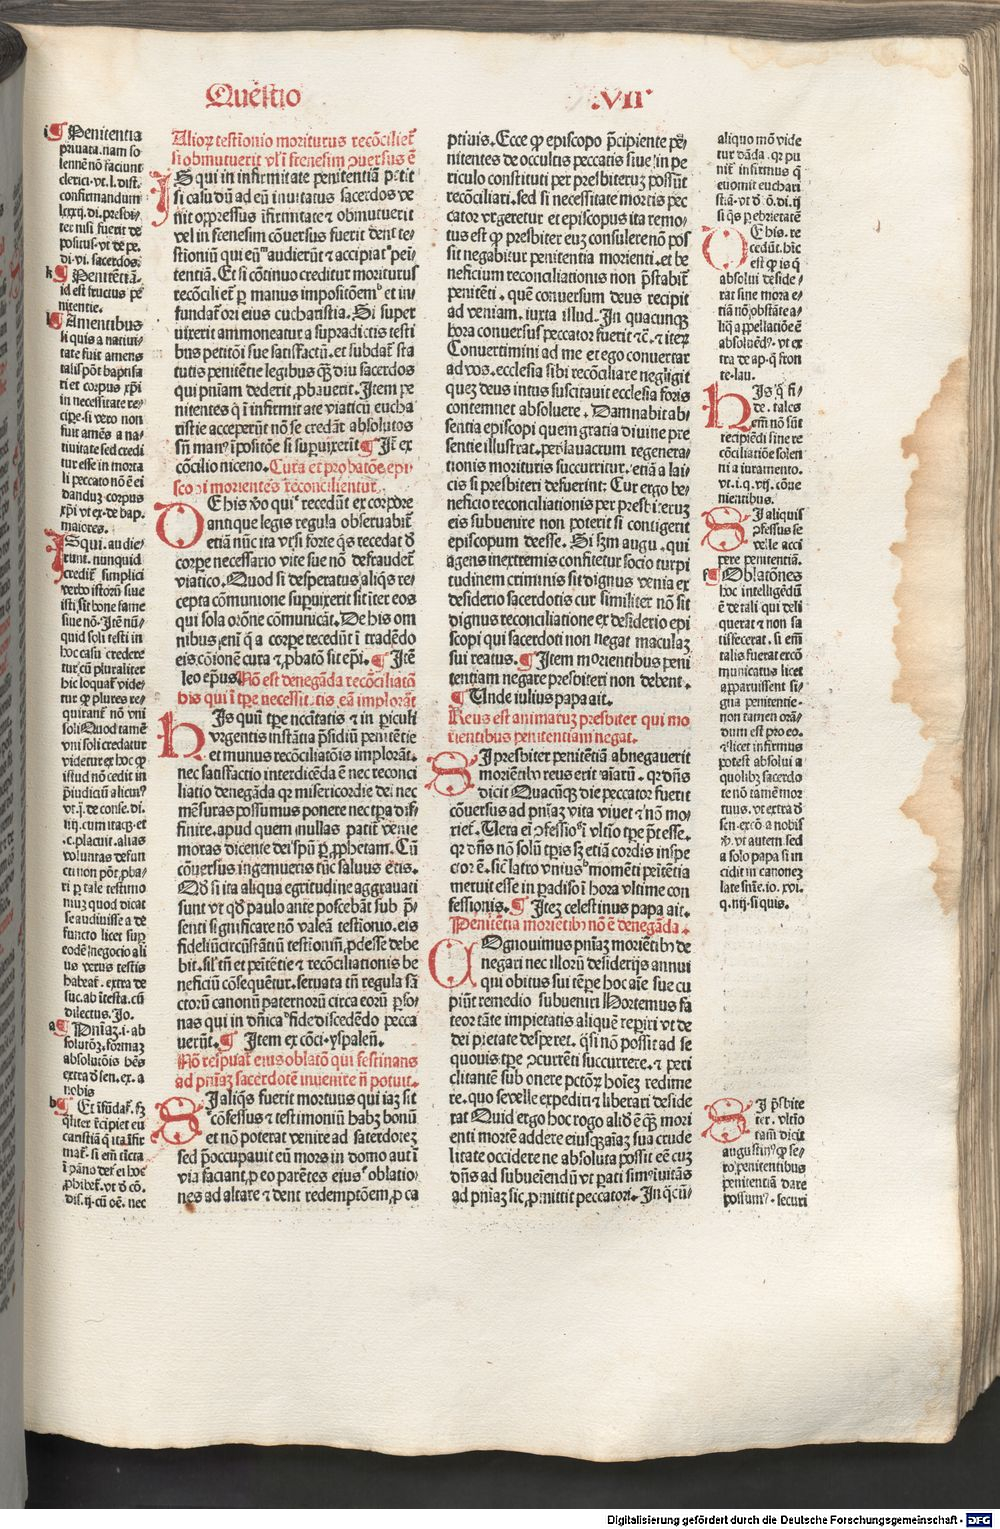 Questio
.VII.
¶ Penitentia
priuata. nam so
lenne nō faciunt
clerici. vt. l. dist.
confirmandum
lxxxij. di. presbi-
ter nisi fuerit de
positus. vt de pe.
di. vi. sacerdos.
¶ Penitētiā.
id est fructus pe
nitentie.
¶ Amentibus
si quis a natiui-
tate fuit amens
talis pōt baptisa
ri et corpus xp̄i
in necessitate re-
cipe. si vero non
fuit amēs a na-
tiuitate sed credi
tur esse in morta
li peccato nō ē ei
dandum corpus
xp̄i vt ex. de bap.
maiores.
IS qui. audie-
runt. nunquid
credit̄ simplici
verbo istorū siue
isti sit bone fame
siue nō. Itē nū-
quid soli testi in
hoc casu credere
tur cū pluraliter
hic loquat̄ vide-
tur ꝙ plures re-
quirant̄ nō vni
soli Quod tamē
vni soli credatur
videtur ex hoc ꝙ
istud nō cedit in
p̄iudiciū alicuiꝰ
vt. j. de conse. di.
iiij. cum itaqꝫ. et
.c. placuit. alias
voluntas defun
cti non pōt ꝓba-
ri per tale testimo
nium quod dicat
se audiuisse a de
functo licet suꝑ
eodē negocio ali
us verus testis
habeat̄. extra de
suc. ab ītesta. cū
dilectus. Jo.
¶ Pn̄iaꝫ. i. ab
solutōꝫ. formaꝫ
absolutōis hēs
extra d̄ sen. ex. a
nobis
¶ Et īfūdat̄. sꝫ
qͥliter rēcipiet eu
caristiā qͥ ita īfir
mat̄. si em̄ tīcta
ī pāno det̄ ei hoc
ꝓhibet̄. vt d̄ cō.
dis. ij. cū oē. nec
Alioꝝ testīonio moriturus recōciliet̄
si obmutuerit vl̓ ī frenesim ꝯuersus ē
IS qui in infirmitate penitentiā petit
si casu dū ad eū inuitatus sacerdos ve
nit oppressus īfirmitate ⁊ obmutuerit
vel in frenesim cōuersus fuerit dent te-
stioniū qui eū audierūt ⁊ accipiat pēi-
tentiā. Et si cōtinuo creditur moriturus
recōciliet̄ ꝑ manus impositōem et in-
fundat̄ ori eius eucharistia. Si super
uixerit ammoneatur a supradictis testi
bus petitōi sue satisfactū. et subdat̄ sta
tutis penitentie legibus qͣꝫdiu sacerdos
qui pn̄iam dederit ꝓbauerit. Item pe
nitentes qͥ ī infirmitate viaticū eucha
ristie acceperūt nō se credāt absolutos
sn̄ manꝰ īpositōe si suꝑuixerīt ¶ Jt̄ ex
cōcilio niceno. Cura et probatōe epi-
scopi morientes reconcilientur.
DE his v̓o quiꝰ recedūt ex corpore
antique legis regula obseruabit̄
etiā nūc ita vt si forte qͥs recedat d̄
corpe necessario vite sue nō defraudet̄
viatico. Quod si desperatus aliqͥs re-
cepta cōmunione supuixerit sit īter eos
qui sola orōne cōmunicāt. De his om
nibus enī qͥ a corpe recedūt ī tradēdo
eis cōionē cura ⁊ ꝓbatō sit epī. ¶ Itē
leo ep̄us. Nō est denegāda recōciliatō
his qui ī tꝑe necessitatis eā implorāt
HIs quiī tꝑe nccītatis ⁊ in ꝑiculi
vrgentis instātia p̄sidiū penitētie
et munus recōciliatōis implorāt.
nec satisfactio interdicēda ē nec reconci
liatio denegāda qꝛ misericordie dei nec
mēsuras possumus ponere nec tp̄a diffi
finire. apud quem nullas patit̄ venie
moras dicente dei spū ꝑ ꝓphetam. Cū
cōuersus ingemueris tūc saluus eris.
Qd̓ si ita aliqua egritudine aggrauati
sunt vt qd̓ paulo ante poscebāt sub p̄-
senti significare nō valeā testionio. eis
fideliū circūstātiū testioniū ꝓdesse debe
bit. sil̓ tn̄ et pēitētie ⁊ recōciliationis be
neficiū cōsequētur. seruata tn̄ regula sā
ctorū canonū paternorū circa eorū ꝑso-
nas qui in dn̄ica fide discedēdo pecca
uerūt. ¶ Item ex cōci. yspaleñ.
Nō respuat̄ eius oblatō qui festinans
ad pn̄iaꝫ sacerdotē inuenire ñ potuit.
SI aliqͥs fuerit mortuus qui iaꝫ sit
cōfessus ⁊ testimoniū habꝫ bonū
et nō poterat venire ad saterdoteꝫ
sed p̄occupauit eū mors in domo aut ī
via faciant ꝓ eo parētes eiusꝰ oblatio-
nes ad altare ⁊ dent redemptōem ꝓ ca
ptiuis. Ecce ꝙ episcopo p̄cipiente pe-
nitentes de occultis peccatis siue in pe
riculo constituti per presbiteruꝫ possūt
recōciliari. sed si necessitate mortis pec
cator vrgeretur et episcopus ita remo-
tus est ꝙ presbiter euꝫ consulere nō pos
sit negabitur penitentia morienti. et be
neficium reconciliationis non p̄stabit̄
penitēti. quē conuersum deus recipit
ad veniam. iuxta illud. In quacunqꝫ
hora conuersus peccator fuerit ⁊c̄. ⁊ iteꝝ
Conuertimini ad me et ego conuertar
ad vos. ecclesia sibi recōciliare negligit
queꝫ deus intus suscitauit ecclesia foris
contemnet absoluere. Damnabit ab-
sentia episcopi quem gratia diuine pre
sentie illustrat. per lauacrum regenera-
tionis morituris succurritur. etiā a lai-
cis si presbiteri defuerint: Cur ergo be-
neficio reconciliationis per presbiterus
eis subuenire non poterit si contigerit
episcopum deesse. Si scd̓m augu. qui
agens in extremis confitetur socio turpi
tudinem criminis sit dignus venia ex
desiderio sacerdotis cur similiter nō sit
dignus reconciliatione ex desiderio epi
scopi qui sacerdoti non negat maculaꝫ
sui reatus. ¶ Item morientibus peni
tentiam negare presbiteri non debent.
¶ Unde iulius papa ait.
Reus est animaruꝫ presbiter qui mo
rientibus penitentiam negat.
SI presbiter penitētiā abnegauerit
moriētibꝰ reus erit aīarū. qꝛ dn̄s
dicit Quacūqꝫ die peccator fuerit
cōuersus ad pn̄iaꝫ vita viuet ⁊ nō mo-
riet̄. Uera eī ꝯfessio ī vltīo tꝑe p̄t esse.
qꝛ dn̄s nō solū tꝑis sꝫ etiā cordis inspe
ctor ē. sic latro vniusꝰ momēti pēitētia
meruit esse in padiso ī hora vltime con
fessionis. ¶ Iteꝫ celestinus papa ait.
Penitētia moriētibꝰ nō ē denegāda.
COgnouimus pn̄iaꝫ moriētibꝰ de
negari nec illorū desiderijs annui
qui obitus sui tēpe hoc aīe sue cu
piūt remedio subueniri Hortemus fa
teor tāte impietatis aliquē reperiri vt de
dei pietate desperet. qͣsi nō possit ad se
quouis tꝑe ꝯcurrēti succurrere. ⁊ peri
clitantē sub onere pctōꝝ hoīeꝫ redime
re. quo se velle expediri ⁊ liberari deside
rat Quid ergo hoc rogo aliud ē qͣꝫ mori
enti mortē addere eiusqꝫ aīaꝫ sua crude
litate occidere ne absoluta possit eē cuꝫ
dn̄s ad subueniendū vt pati simꝰ inuitās
ad pn̄iaꝫ sic ꝓmittit peccatori. In qͣcū-
aliquo mō vide
tur dāda. qꝛ pu
nit̄ infirmus qͥ
euomit euchari
stiā. vt d̄ ꝯ. di. ij
si qͥs ꝑ ebrietatē
DE his. re
cedūt. hic
est ꝙ is qͥ
absolui deside-
rat sine mora e-
tiā nō obstāte a-
liqͣ appellatiōe ē
absoluēdꝰ. vt ex
tra de ap. qͣ fron
te. lau.
HIs qͥ. fi-
de. tales
em̄ nō sūt
recipiēdi sine re
cōciliatiōe solen
ni a iuramento.
vt. i. q. vij. cōue
nientibus.
SI aliquis
ꝯfessus se
velle acci
pere penitentiā.
¶ Oblatōnes
hoc intelligēdū
ē de tali qui deli
querat ⁊ non sa
tisfecerat. si em̄
talis fuerat excō
municatus licet
apparuissent si-
gna penitentie.
non tamen orā-
dum est pro eo.
⁊ licet infirmus
potest absolui a
quolibꝫ sacerdo
te nō tamē mor
tuus. vt extra d̄
sen. excō a nobis
vt autem sed
a solo papa si in
cidit in canoneꝫ
late snīe. io. xvi.
q. iij. si quis.
SI p̄sbite
ter. vltio
tam̄ dicit
augustinꝰ ꝙ se-
ro penitentibus
penitentiā dare
possumꝰ. securi
Digitalisierung gefördert durch die Deutsche Forschungsgemeinschaft - DFG